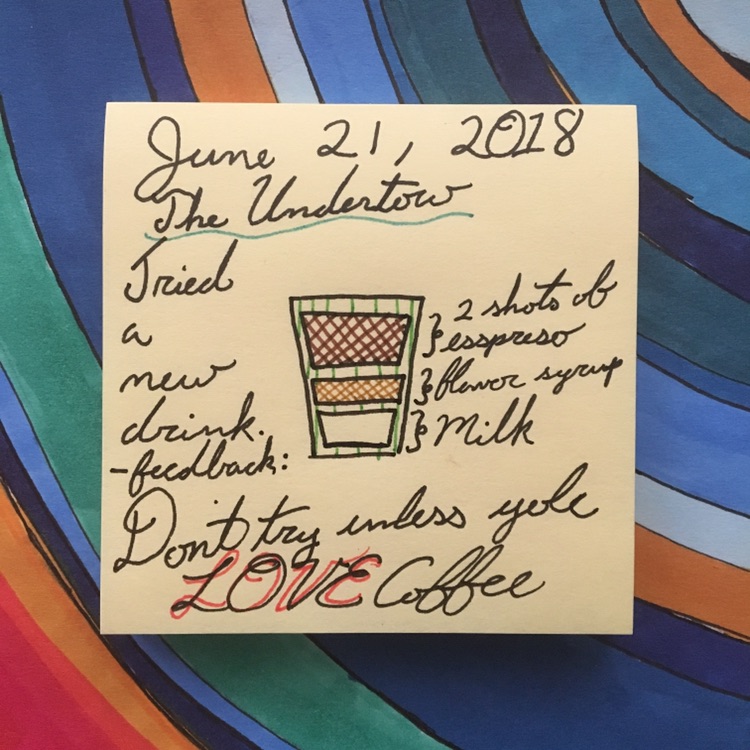 June 21, 2018
The Undertow
Tried
a
new
drink.
-feedback:
2 shots of
esspreso
flavor syrup
Milk
Don't try unless you
LOVE Coffee